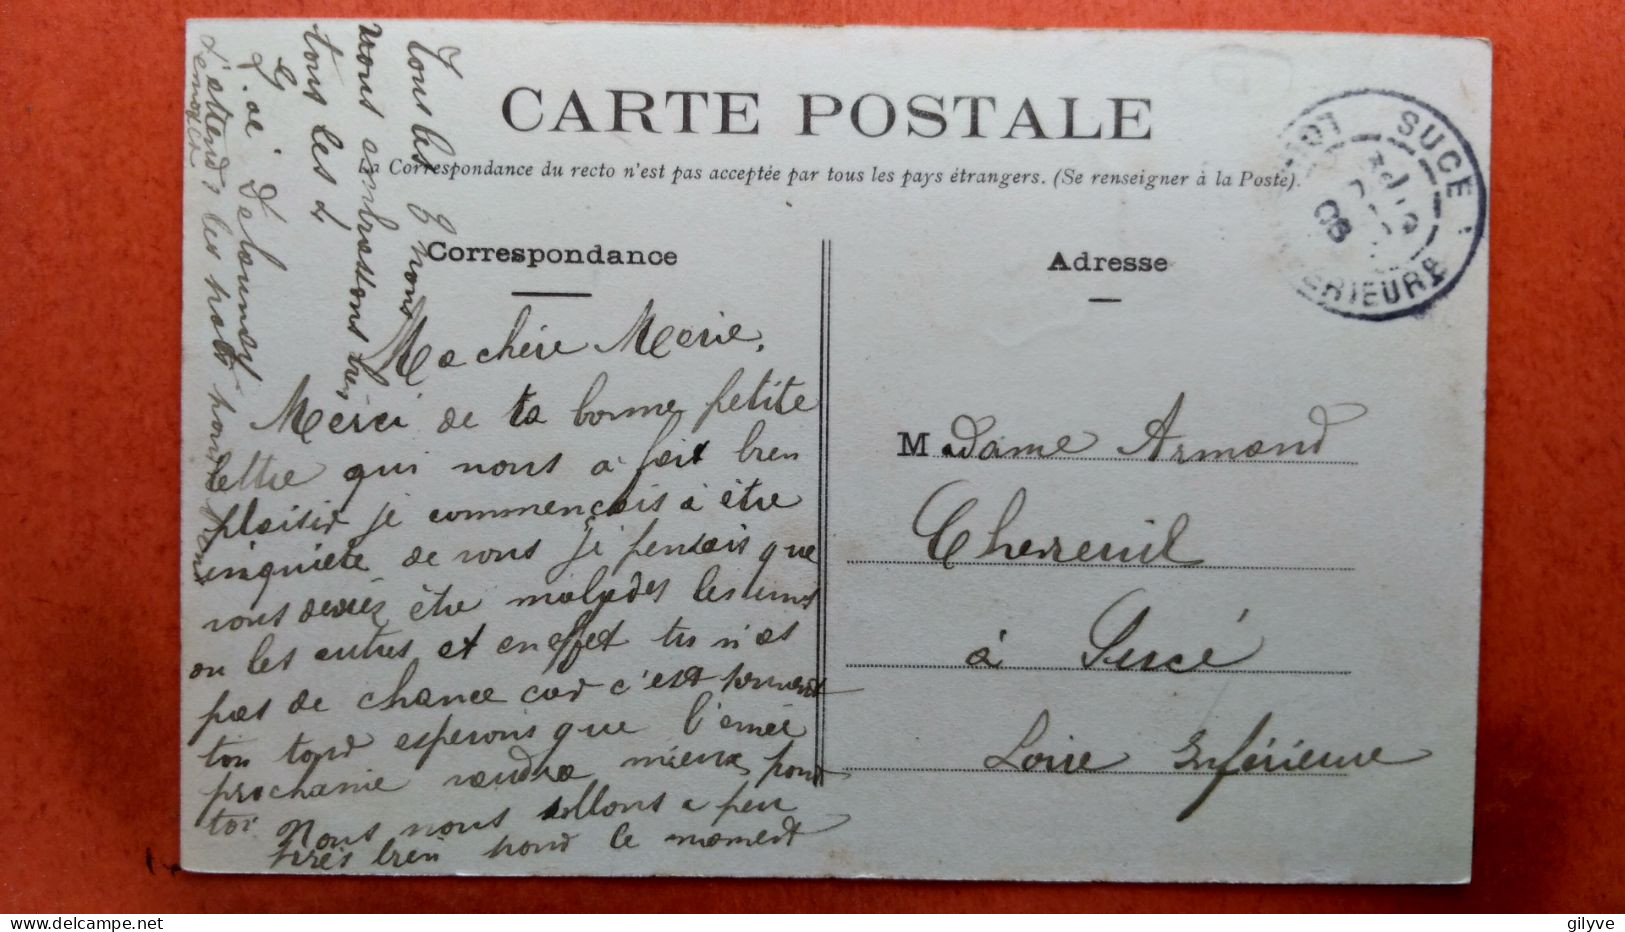 CARTE POSTALE
La Correspondance du recto n'est pas acceptée par tous les pays étrangers. (Se renseigner à la Poste).
Correspondance
Adresse
SUCÉ
LOIRE
INFÉRIEURE
08
Ma chère Marie,
Merci de ta bonne petite
lettre qui nous a fait bien
plaisir je commençais à être
inquiète de vous je pensais que
vous deviez être malades les uns
ou les autres et en effet tu n'as
pas de chance car c'est souvent
ton tour esperons que l'anée
prochaine vaudra mieux pour
toi. Nous nous allons a peu
près bien pour le moment
tous les 4 nous
vous embrassons bien
tous les 4
G. de Delaunay
J'attends les
Madame Armand
Chereuil
à Sucé
Loire Inférieure
gilyve